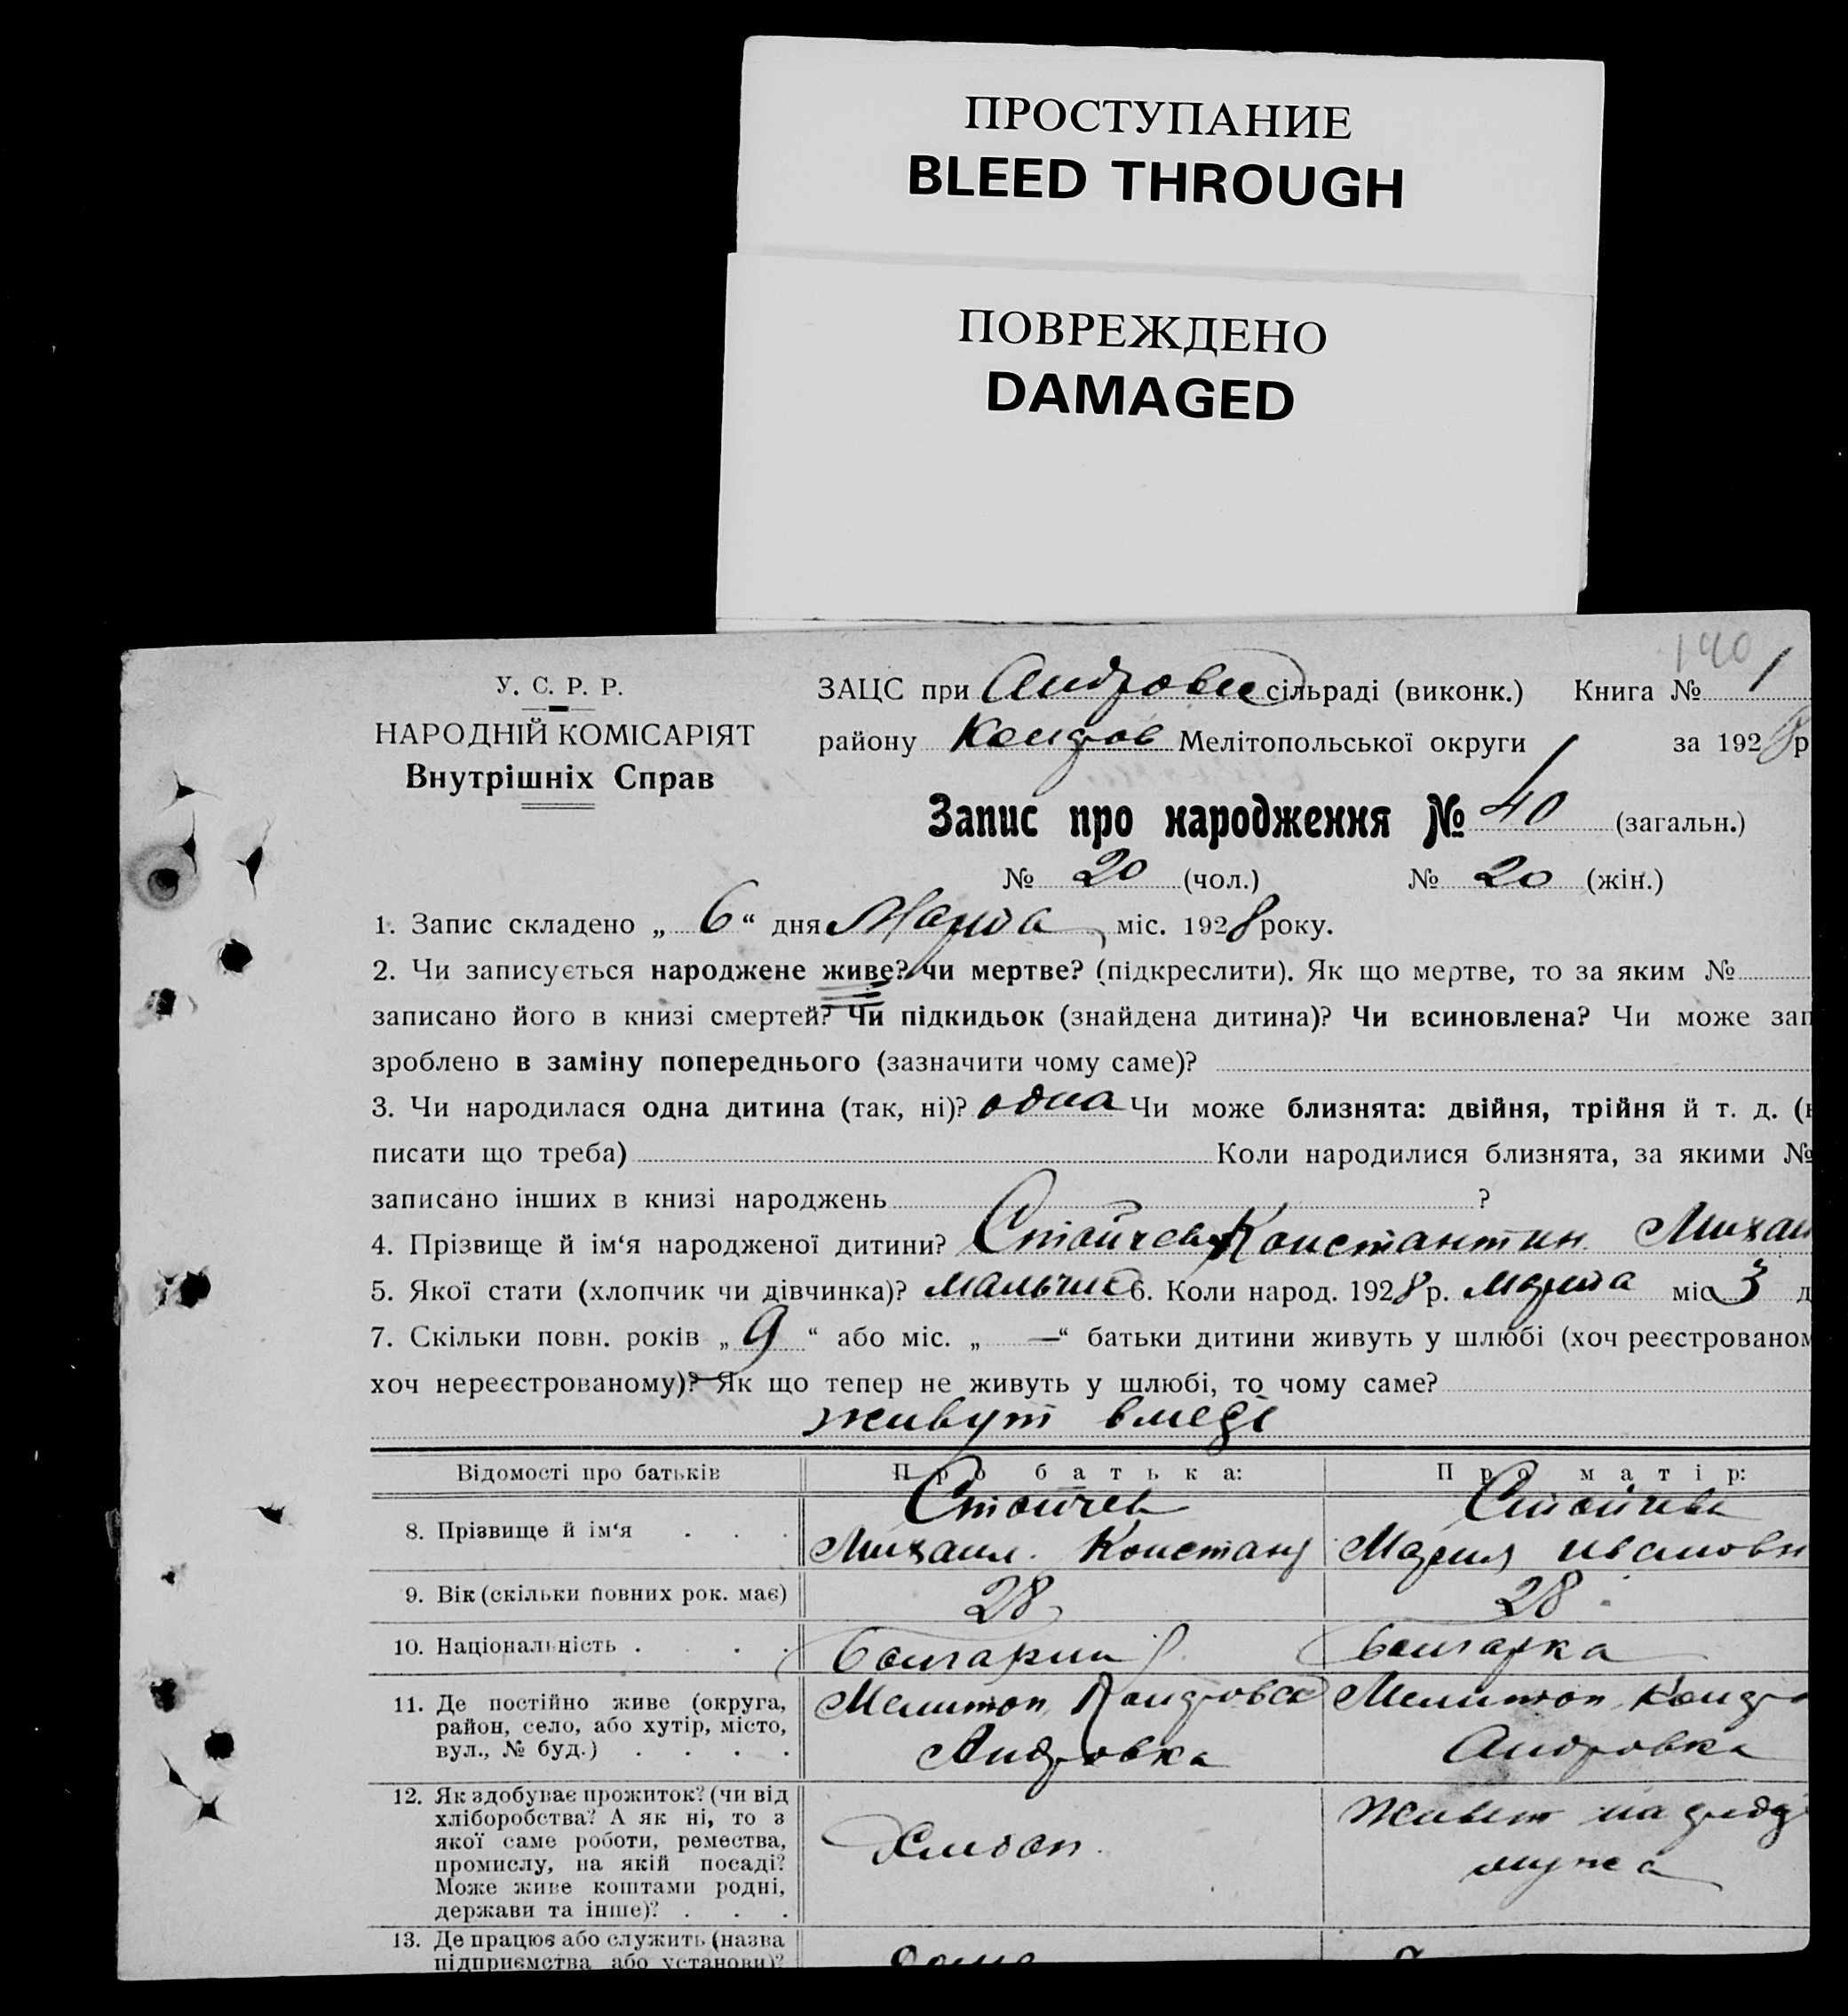 ПРОСТУПАНИЕ
BLEED THROUGH
ПОВРЕЖДЕНО
DAMAGED
140
У. С. Р. Р.
НАРОДНІЙ КОМІСАРІЯТ
Внутрішніх Справ
ЗАЦС при Андровск сільраді (виконк.) Книга № 1
району Кондров Мелітопольської округи за 1928 р
Запис про народження № 40 (загальн.)
№ 20 (чол.) № 20 (жін.)
1. Запис складено „ 6 “ дня Марта міс. 1928 року.
2. Чи записується народжене живе? чи мертве? (підкреслити). Як що мертве, то за яким №
записано його в книзі смертей? Чи підкидьок (знайдена дитина)? Чи всиновлена? Чи може зап
зроблено в заміну попереднього (зазначити чому саме)?
3. Чи народилася одна дитина (так, ні)? одна Чи може близнята: двійня, трійня й т. д. (
писати що треба) Коли народилися близнята, за якими №
записано інших в книзі народжень ?
4. Прізвище й ім‘я народженої дитини? Стойчев Константин Михаи
5. Якої стати (хлопчик чи дівчинка)? мальчик 6. Коли народ. 1928 р. Марта міс 3 д
7. Скільки повн. років „ 9 “ або міс. „ — “ батьки дитини живуть у шлюбі (хоч реєстрованом
хоч нереєстрованому)? Як що тепер не живуть у шлюбі, то чому саме?
живут
Відомості про батьків Про батька: Про матір:
8. Прізвище й ім‘я . . . Стойчев Михаил Констант Стойчева Мария Ивановн
9. Вік (скільки повних рок. має) 28 28
10. Національність . . . . болгарин болгарка
11. Де постійно живе (округа, район, село, або хутір, місто, вул., № буд.) . . . . Мелитоп Кондровск Андровка Мелитоп Кондро Андровка
12. Як здобуває прожиток? (чи від хліборобства? А як ні, то з якої саме роботи, ремества, промислу, на якій посаді? Може живе коштами родні, держави та інше)? . . . Хлебоп. Живет на мужа
13. Де працює або служить (назва підприємства або установи)?